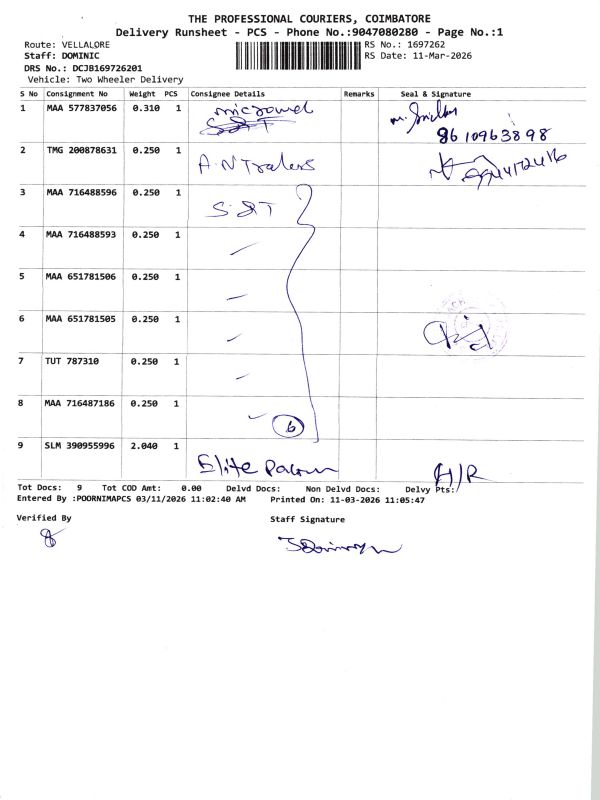 THE PROFESSIONAL COURIERS, COIMBATORE
Delivery Runsheet - PCS - Phone No.:9047080280 - Page No.:1
Route: VELLALORE
RS No.: 1697262
Staff: DOMINIC
RS Date: 11-Mar-2026
DRS No.: DCJB169726201
Vehicle: Two Wheeler Delivery
S No Consignment No Weight PCS Consignee Details Remarks Seal & Signature
1 MAA 577837056 0.310 1
S&T
8610963898
2 TMG 200878631 0.250 1 A.N Traders
3 MAA 716488596 0.250 1 S&T
4 MAA 716488593 0.250 1
5 MAA 651781506 0.250 1
6 MAA 651781505 0.250 1
7 TUT 787310 0.250 1
8 MAA 716487186 0.250 1
6
9 SLM 390955996 2.040 1 Elite H/R
Tot Docs: 9 Tot COD Amt: 0.00 Delvd Docs: Non Delvd Docs: Delvy Pts:
Entered By :POORNIMAPCS 03/11/2026 11:02:40 AM Printed On: 11-03-2026 11:05:47
Verified By Staff Signature